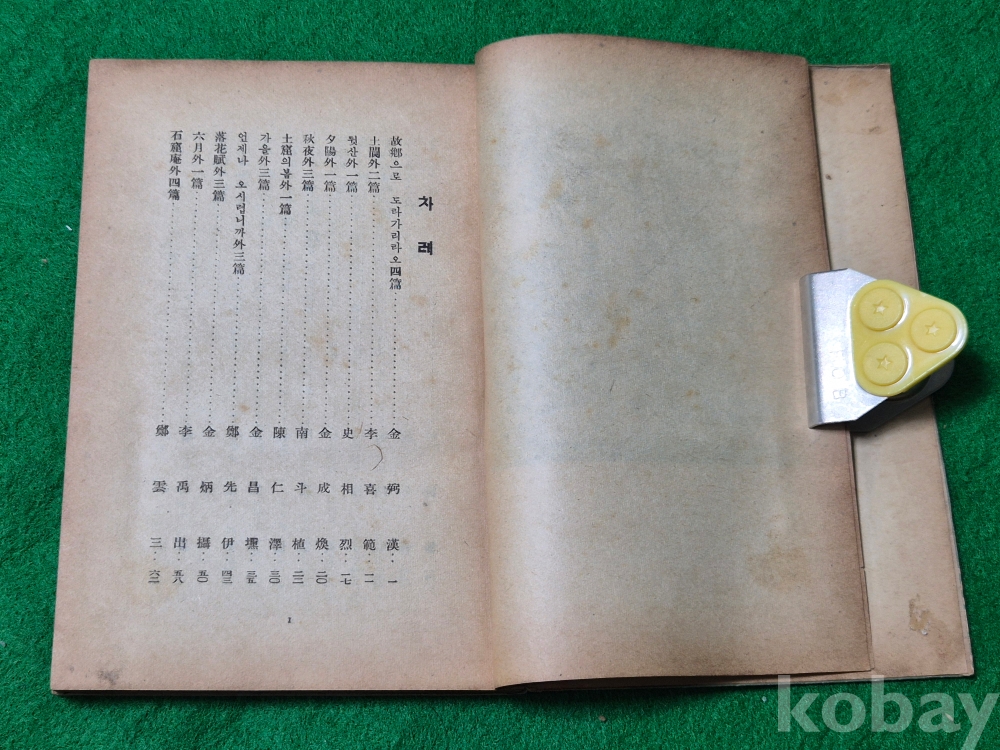 차례
故鄕으로 도라가리라오四篇 金弼漢 一
土閣外二篇 李喜範 一一
뒷산外一篇 史相烈 一七
夕陽外一篇 金成煥 二〇
秋夜外三篇 南斗植 二三
土窟의봄外一篇 陳仁澤 三〇
가을外三篇 金昌壎 三五
언제나 오시렵니까外三篇 鄭先伊 四三
落花賦外三篇 金炳攝 五〇
六月外一篇 李禹出 五八
石窟庵外四篇 鄭雲三 六二
1
kobay